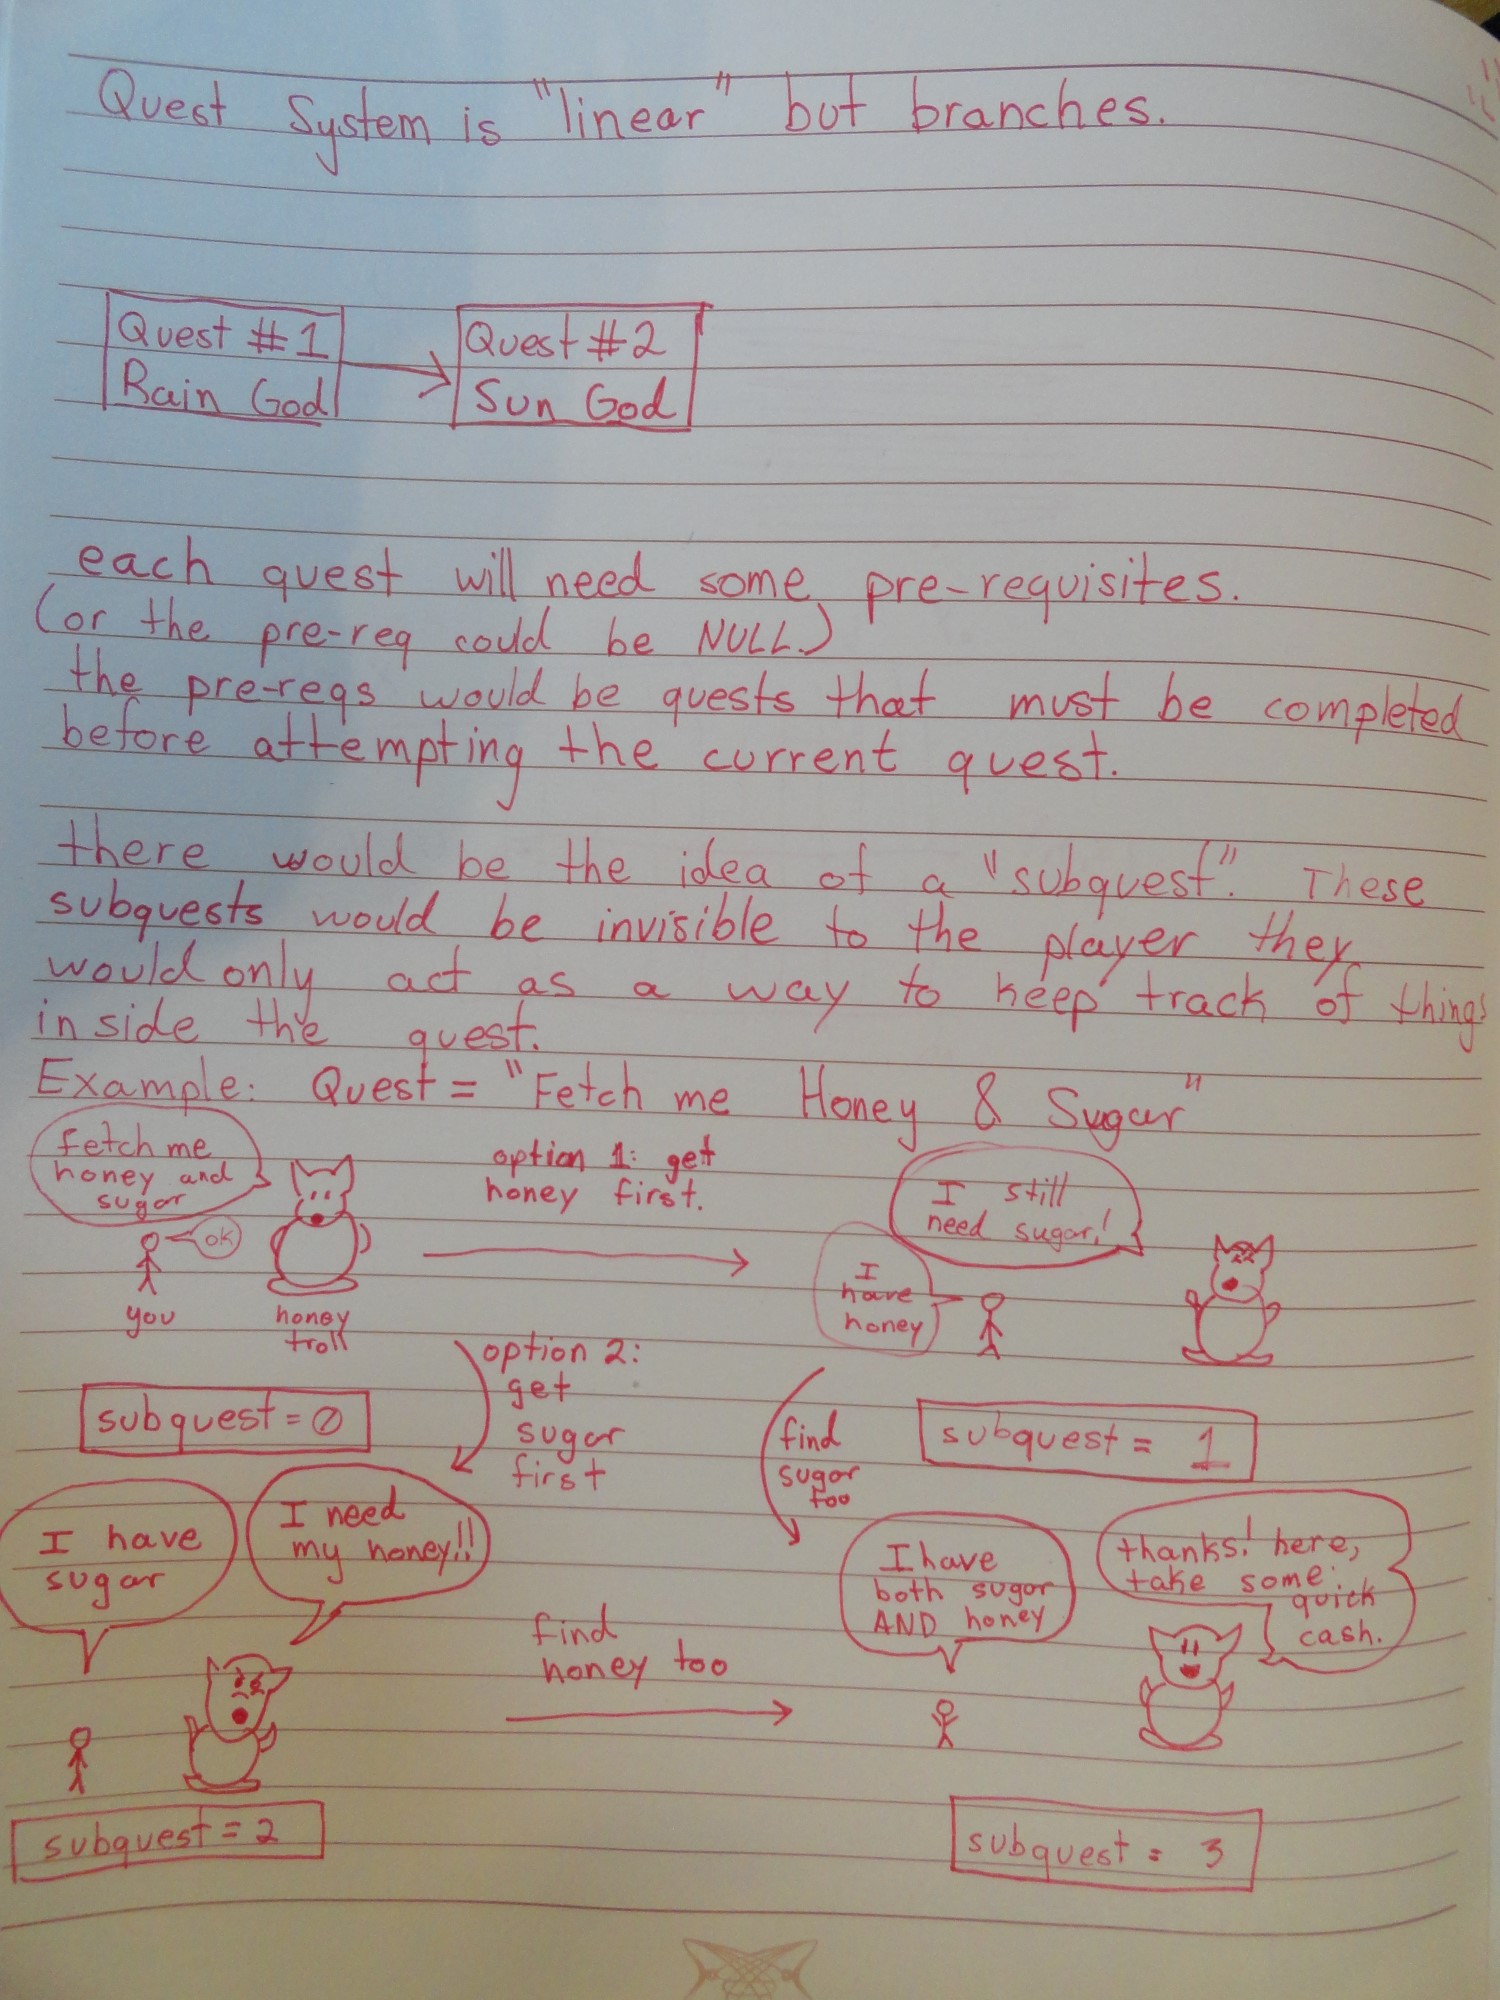 Quest System is "linear" but branches.
Quest #1
Rain God
Quest #2
Sun God
each quest will need some pre-requisites.
(or the pre-req could be NULL.)
the pre-reqs would be quests that must be completed
before attempting the current quest.
there would be the idea of a "subquest". These
subquests would be invisible to the player they
would only act as a way to keep track of things
inside the quest.
Example: Quest = "Fetch me Honey & Sugar"
fetch me
honey and
sugar
OK
you
honey
troll
subquest = 0
option 1: get
honey first.
I still
need sugar!
I
have
honey
subquest = 1
option 2:
get
sugar
first
find
sugar
too
I have
sugar
I need
my honey!!
subquest = 2
find
honey too
I have
both sugar
AND honey
thanks! here,
take some
quick
cash.
subquest = 3